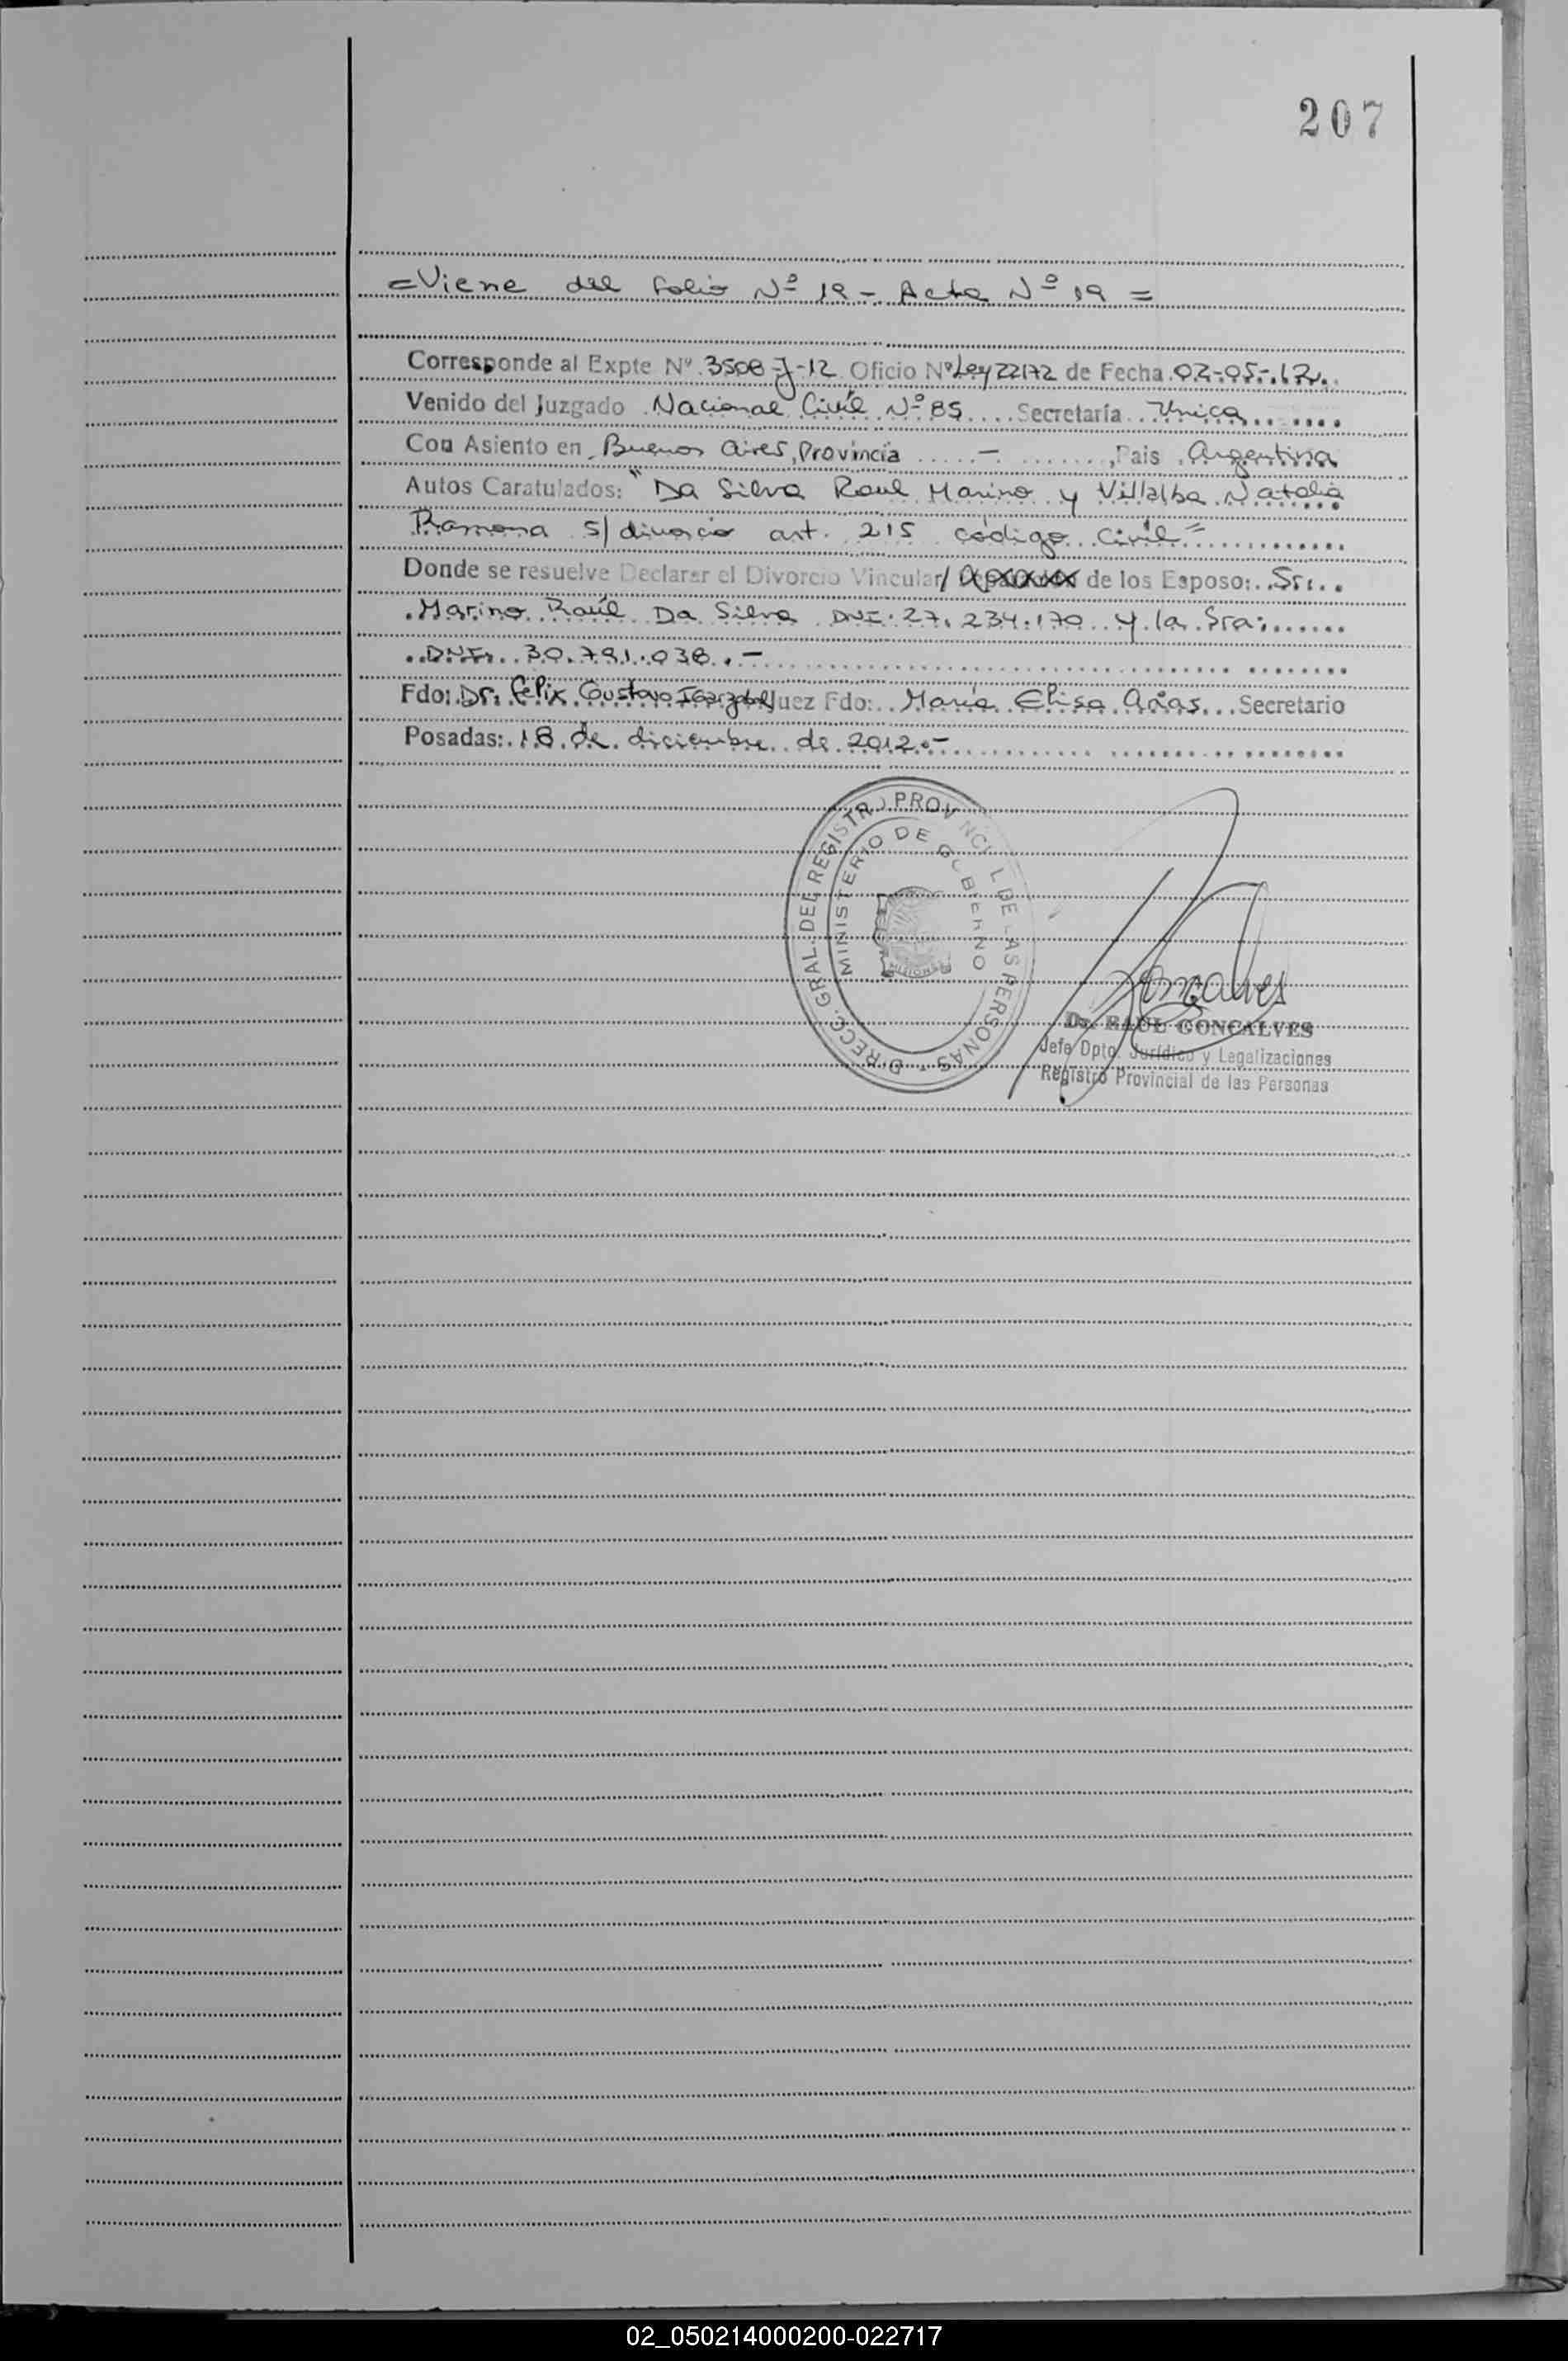 207
=Viene del folio Nº 19 - Acta Nº 19 =
Corresponde al Expte Nº 3508-J-12 Oficio Nº Ley 22172 de Fecha 02-05-12.
Venido del Juzgado Nacional Civil Nº 85 Secretaría Unica
Con Asiento en Buenos Aires, Provincia - , Pais Argentina
Autos Caratulados: "Da Silva Raul Marino y Villalba Natalia
Ramona s/ divorcio art. 215 código Civil"
Donde se resuelve Declarar el Divorcio Vincular/ de los Esposo: Sr.
Marino Raúl Da Silva DNI. 27.234.170 y la Sra:
DNI. 30.791.038.-
Fdo: Dr. Felix Gustavo Juez Fdo: María Elisa Arias Secretario
Posadas: 18 de diciembre de 2012.-
DIRECC. GRAL. DEL REGISTRO PROVINCIAL DE LAS PERSONAS
MINISTERIO DE GOBIERNO
MISIONES
Goncalves
Dr. RAUL GONCALVES
Jefe Dpto. Jurídico y Legalizaciones
Registro Provincial de las Personas
02_050214000200-022717